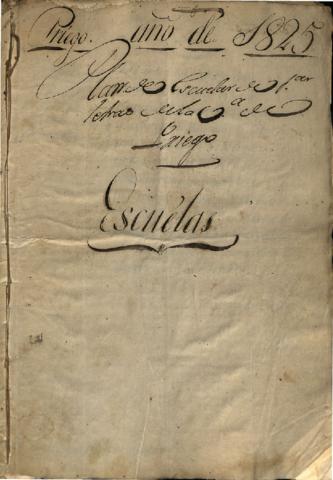 Priego. año de 1825
Plan de Escuelas de 1.as
letras de la V.ª de
Priego
Escuélas